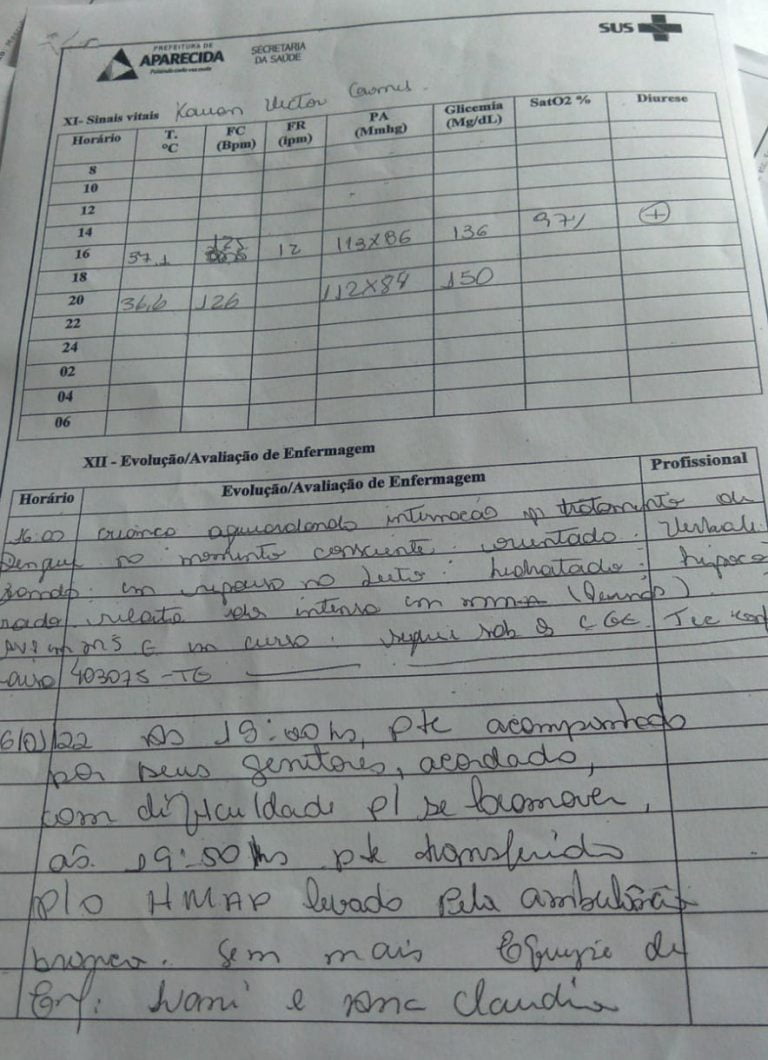 PREFEITURA DE
APARECIDA
SECRETARIA
DA SAÚDE
SUS
XI- Sinais vitais Kauan Victor
Horário T. ºC FC (Bpm) FR (ipm) PA (Mmhg) Glicemia (Mg/dL) SatO2 % Diurese
8
10
12
14
16 37,1 12 113x86 136 97% +
18
20 36,6 126 112x84 150
22
24
02
04
06
XII - Evolução/Avaliação de Enfermagem
Horário Evolução/Avaliação de Enfermagem Profissional
16:00 criança aguardando internação p/ tratamento de
Dengue no momento consciente. orientado. Verbali
zando. em repouso no leito. hidratado. hipoco
rado. relata dor intensa em
em curso. segue sob os C GE. Tec
403075-TE
6/01/22 As 19:00hs, pte acompanhado
por seus genitores, acordado,
com dificuldade p/ se locomover,
as 19:50 hs pte transferido
p/o HMAP levado pela ambulância
branca. Sem mais Equipe de
Enf: Ivani e Ana Claudia